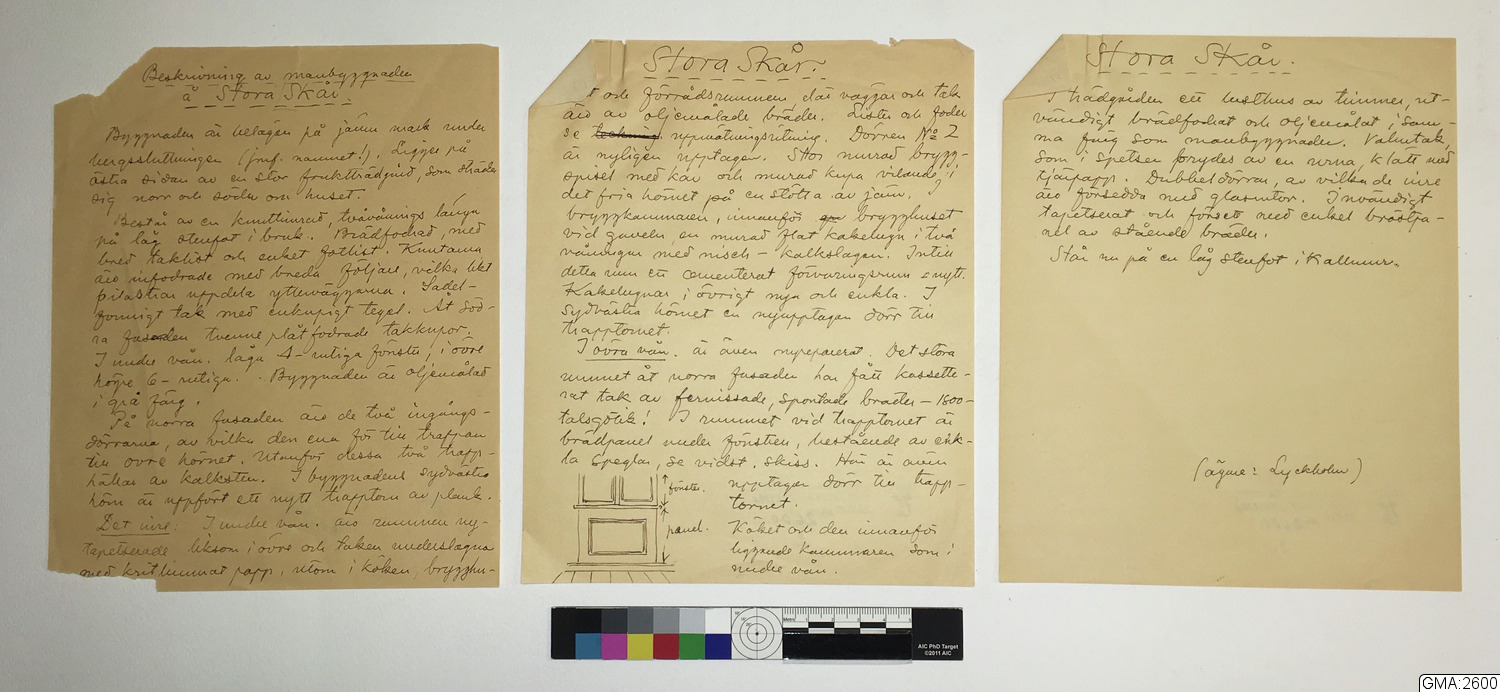 Beskrivning av manbyggnaden
å Stora Skår.
Byggnaden är belägen på jämn mark under
bergssluttningen (jmf. namnet!). Ligger på
östra sidan av en stor fruktträdgård, som sträcker
sig norr och söder om huset.
Består av en knuttimrad, tvåvånings länga
på låg stenfot i bruk. Brädfodrad, med
bred taklist och enkel fotlist. Knutarna
äro infodrade med breda följare, vilka likt
pilastrar uppdela ytterväggarna. Sadel-
formigt tak med enkupigt tegel. Åt söd-
ra fasaden tvenne plåtfodrade takkupor.
I undre vån. låga 4-rutiga fönster, i övre
högre 6-rutiga. Byggnaden är oljemålad
i grå färg.
På norra fasaden äro de två ingångs-
dörrarna, av vilka den ena för till trappan
till övre hörnet. Utanför dessa två trapp-
hällar av kalksten. I byggnadens sydvästra
hörn är uppfört ett nytt trapptorn av plank.
Det inre: I undre vån. äro rummen ny-
tapetserade liksom i övre och taken underslagna
med kritlimmat papp, utom i köken, brygghu-
Stora Skår.
t och förrådsrummen, där väggar och tak
äro av oljemålade bräder. Lister och foder
se teckning uppmätningsritning. Dörren No 2
är nyligen upptagen. Stor murad brygg-
spisel med kar och murad kupa vilande i
det fria hörnet på en stötta av järn. I
bryggkammaren, innanför brygghuset
vid gaveln, en murad flat kakelugn i två
våningar med nisch - kalkslagen. Intill
detta rum ett cementerat förvaringsrum = nytt.
Kakelugnar i övrigt nya och enkla. I
sydvästra hörnet en nyupptagen dörr till
trapptornet.
I övra vån. är även nyreparerat. Det stora
rummet åt norra fasaden har fått kassette-
rat tak av fernissade, spontade bräder - 1600-
talsgötik! I rummet vid trapptornet är
brädpanel under fönstren, bestående av enk-
la speglar, se vidst. skiss. Här är även
upptagen dörr till trapp-
tornet.
Köket och den innanför
liggande kammaren som i
undre vån.
fönster.
panel.
Stora Skår.
I trädgården ett lusthus av timmer, ut-
vändigt brädfodrat och oljemålat i sam-
ma färg som manbyggnaden. Valmtak,
som i spetsen prydes av en urna, klätt med
tjärpapp. Dubbeldörrar, av vilka de inre
äro försedda med glasrutor. Invändigt
tapetserat och försett med enkel bröstpa-
nel av stående bräder.
Står nu på en låg stenfot i kallmur.
(ägare: Lyckholm)
AIC PhD Target
©2011 AIC
GMA:2600